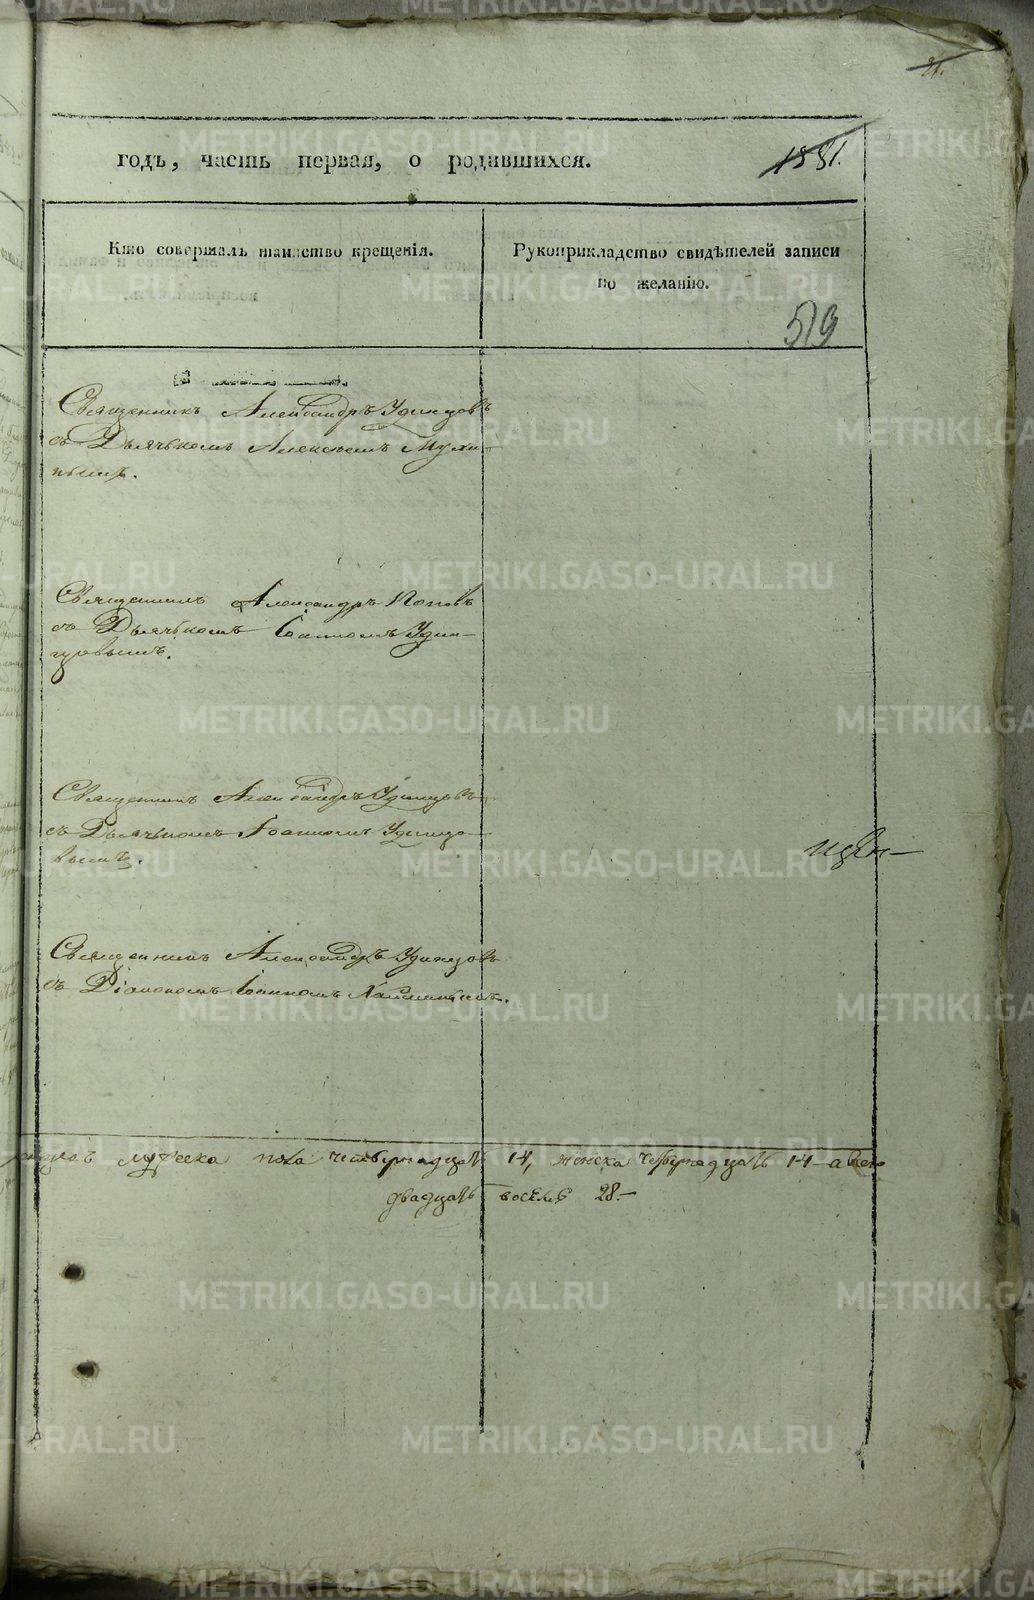 годъ, часть первая, о родившихся.
1881.
Кто совершалъ таинство крещенія.
Рукоприкладство свидѣтелей записи
по желанію.
519
Священникъ Александръ Удинцовъ
съ Дьячькомъ Алексѣемъ Мухи-
нымъ.
Священникъ Александръ Поповъ
съ Дьячькомъ Іоанномъ Удин-
цовымъ.
Священникъ Александръ Удинцовъ
съ Дьячькомъ Іоанномъ Удинцо-
вымъ.
Священникъ Александръ Удинцовъ
съ Діакономъ Іоанномъ
мужеска пола четырнадцать 14, женска четырнадцать 14 а всего
двадцать восемь 28.-
METRIKI.GASO-URAL.RU